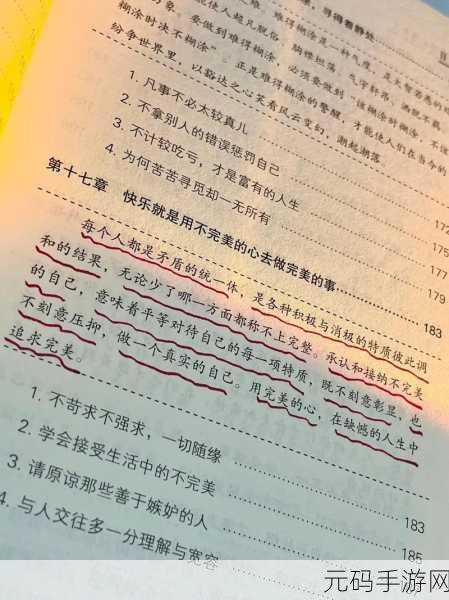 难，难得糊涂是一种气度，是大智若愚的
能使人超凡脱俗，胸襟坦荡，气宇轩昂，洒脱不羁，
象。要做到难得糊涂，必须要做到"该糊涂时糊涂，不该
糊涂时决不糊涂"。正是难得糊涂的警醒，才能使人们在当今的
纷争世界里，以豁达之心笑看风云变幻，潮起潮落
1. 凡事不必太较真儿 172
2. 不拿别人的错误惩罚自己 175
3. 不计较吃亏，才是富有的人生 177
4. 为何苦苦寻觅却一无所有 179
第十七章 快乐就是用不完美的心去做完美的事 183
每个人都是矛盾的统一体，是各种积极与消极的特质彼此调
和的结果，无论少了哪一方面都称不上完整。承认和接纳不完美
的自己，意味着平等对待自己的每一项特质，既不刻意彰显，也
不刻意压抑，做一个真实的自己。用完美的心，在缺憾的人生中
追求完美。
1. 不苛求不强求，一切随缘 183
2. 学会接受生活中的不完美 185
3. 请原谅那些善于嫉妒的人
4. 与人交往多一分理解与宽容
元码手游网